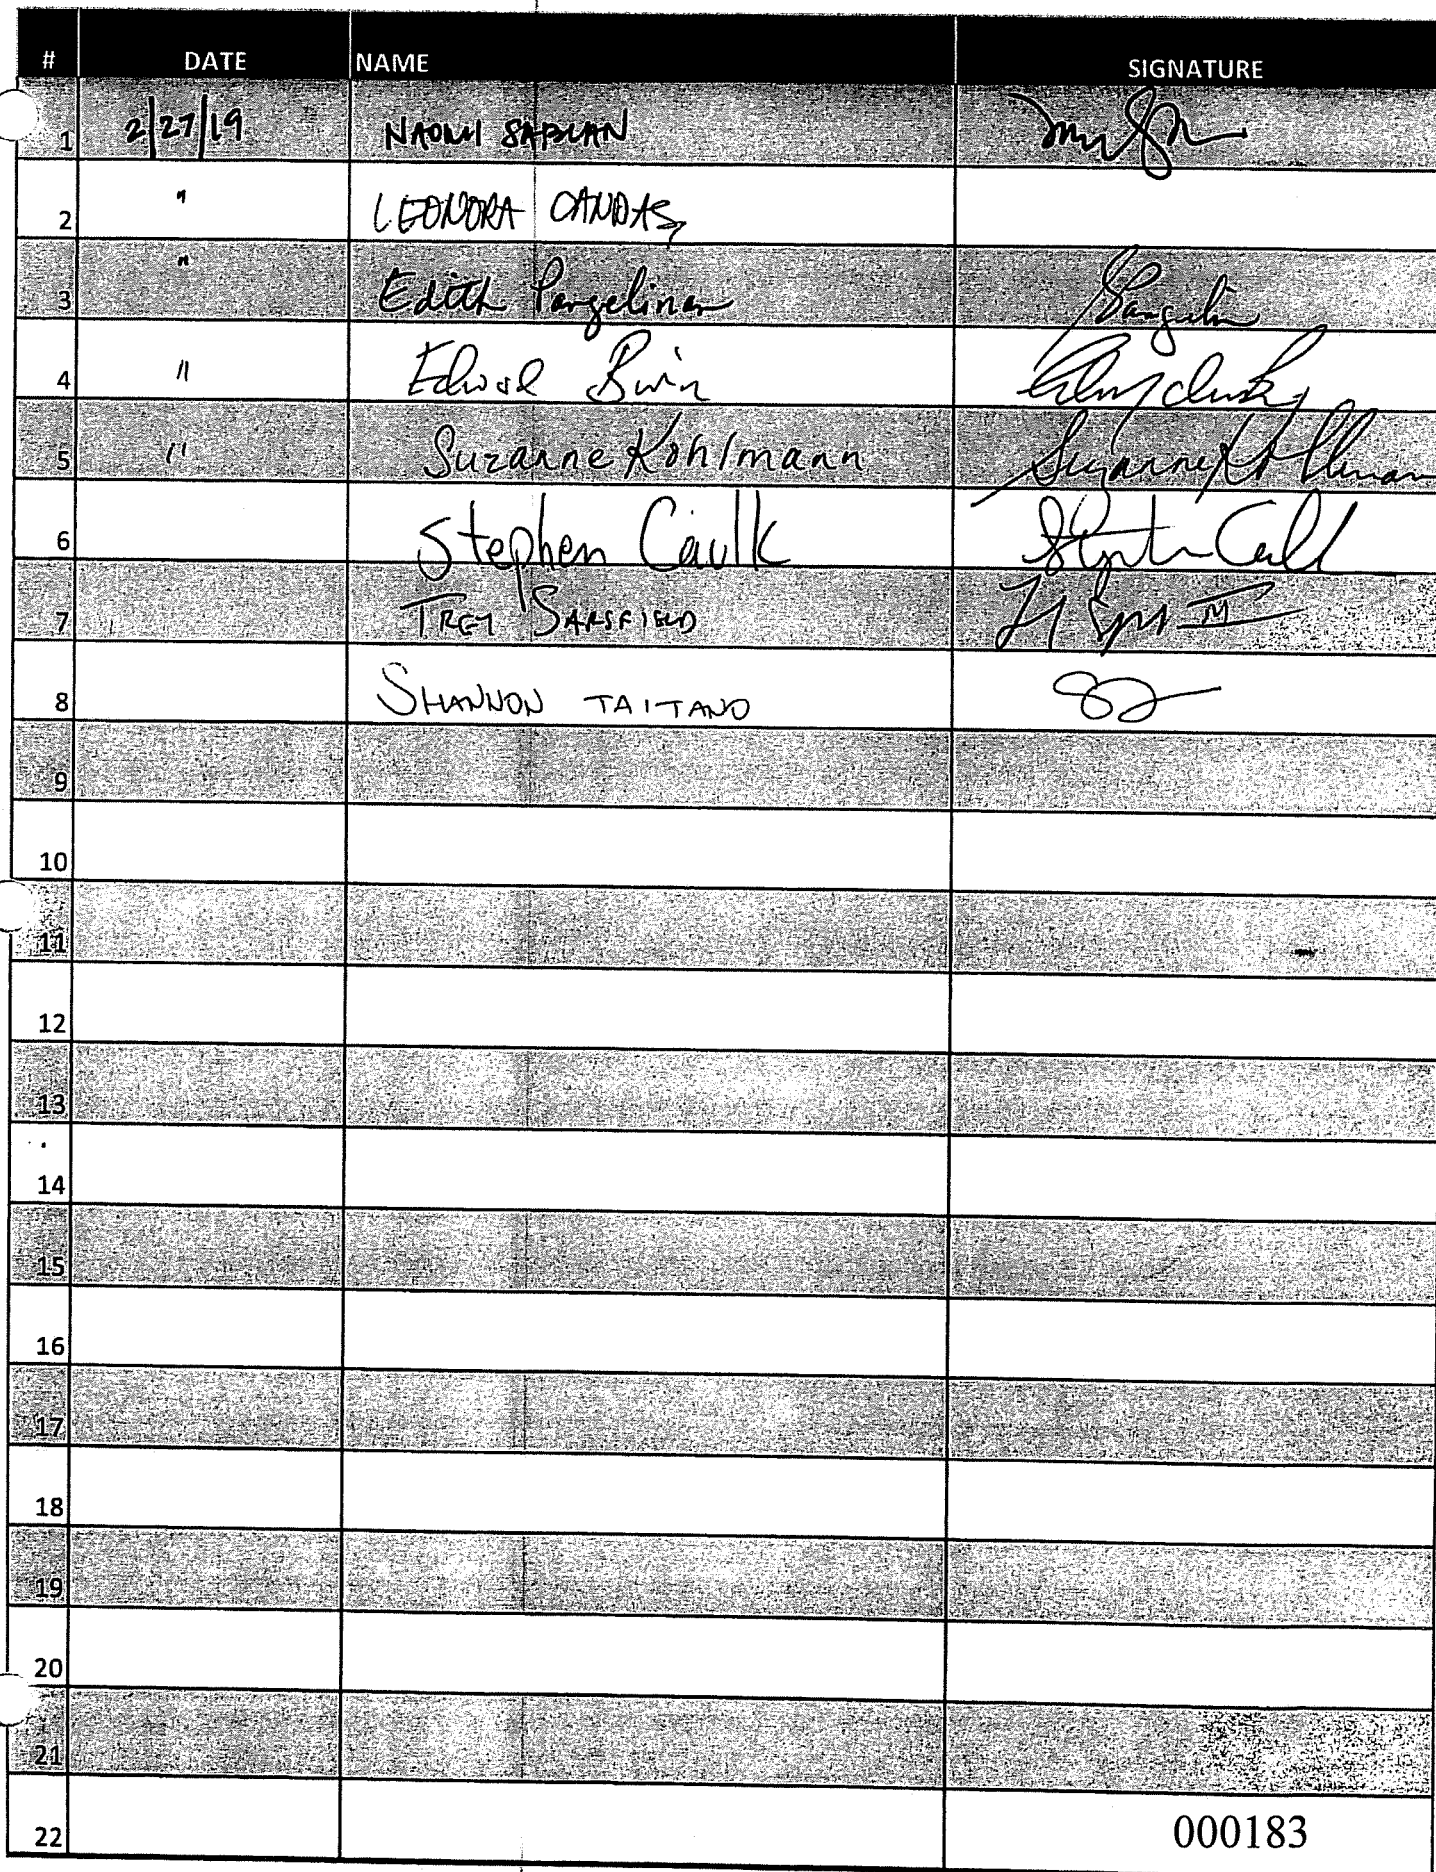 # DATE NAME SIGNATURE
1 2/27/19 NAOMI SABLAN
2 " LEONORA CANDASO
3 " Edith Pangelinan
4 " Edward
5 " Suzanne Kohlmann Suzanne Kohlmann
6 Stephen Caulk
7 TREY SARSFIELD
8 SHANNON TAITANO
9
10
11
12
13
14
15
16
17
18
19
20
21
22 000183